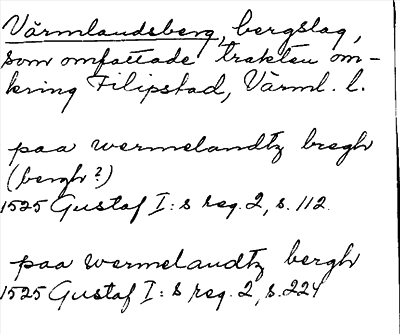 Värmlandsberg, bergslag,
som omfattade trakten om-
kring Filipstad, Värml. l.
paa wermelandtz bregh
(bergh?)
1525 Gustaf I:s reg. 2, s. 112.
paa wermelandtz bergh
1525 Gustaf I:s reg. 2, s. 224